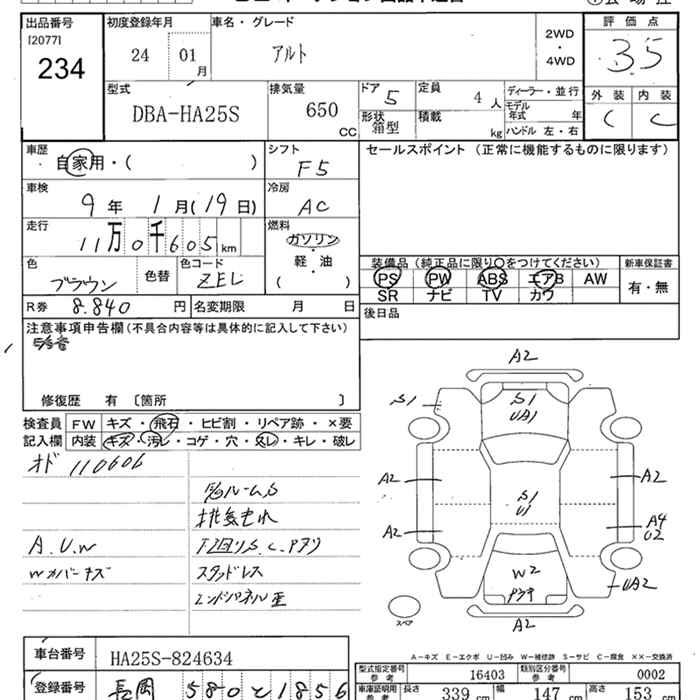 出品番号 初度登録年月 車名・グレード 評価点
[2077]
234
24 01月 アルト
2WD
・
4WD
3.5
外装 内装
C C
型式 排気量 ドア 定員 ディーラー・並行
DBA-HA25S 650 CC 5 4人
モデル年式 年
形状 箱型 積載 kg ハンドル 左・右
車歴 シフト セールスポイント (正常に機能するものに限ります)
自家用・( ) F5
車検 冷房
9年 1月(19日) AC
走行 燃料
11万0千605km ガソリン
・
軽・油
( )
色 色替 色コード
ブラウン ZEL
装備品 (純正品に限り○をつけてください) 新車保証書
PS PW ABS エアB AW 有・無
SR ナビ TV カワ
R券 8.840円 名変期限 月 日
後日品
注意事項申告欄(不具合内容等は具体的に記入して下さい)
修復歴 有 〔箇所 〕
検査員 FW キズ・飛石・ヒビ割・リペア跡・×要
記入欄 内装 キズ・汚レ・コゲ・穴・スレ・キレ・破レ
オド 110606
ルームS
排気もれ
A.U.W 下廻りS.C.アリ
Wカバーキズ スタッドレス
エンドパネル歪
A2
S1 S1
UA1
A2 A2
S1
U1
A2 A4
U2
W2 UA2
スペア
A2
A-キズ E-エクボ U-凹み W-補修跡 S-サビ C-腐食 ××-交換済
車台番号 HA25S-824634
型式指定番号 参考 16403 類別区分番号 参考 0002
登録番号 長岡 580と1856
車庫証明用 参考 長さ 339cm 幅 147cm 高さ 153cm